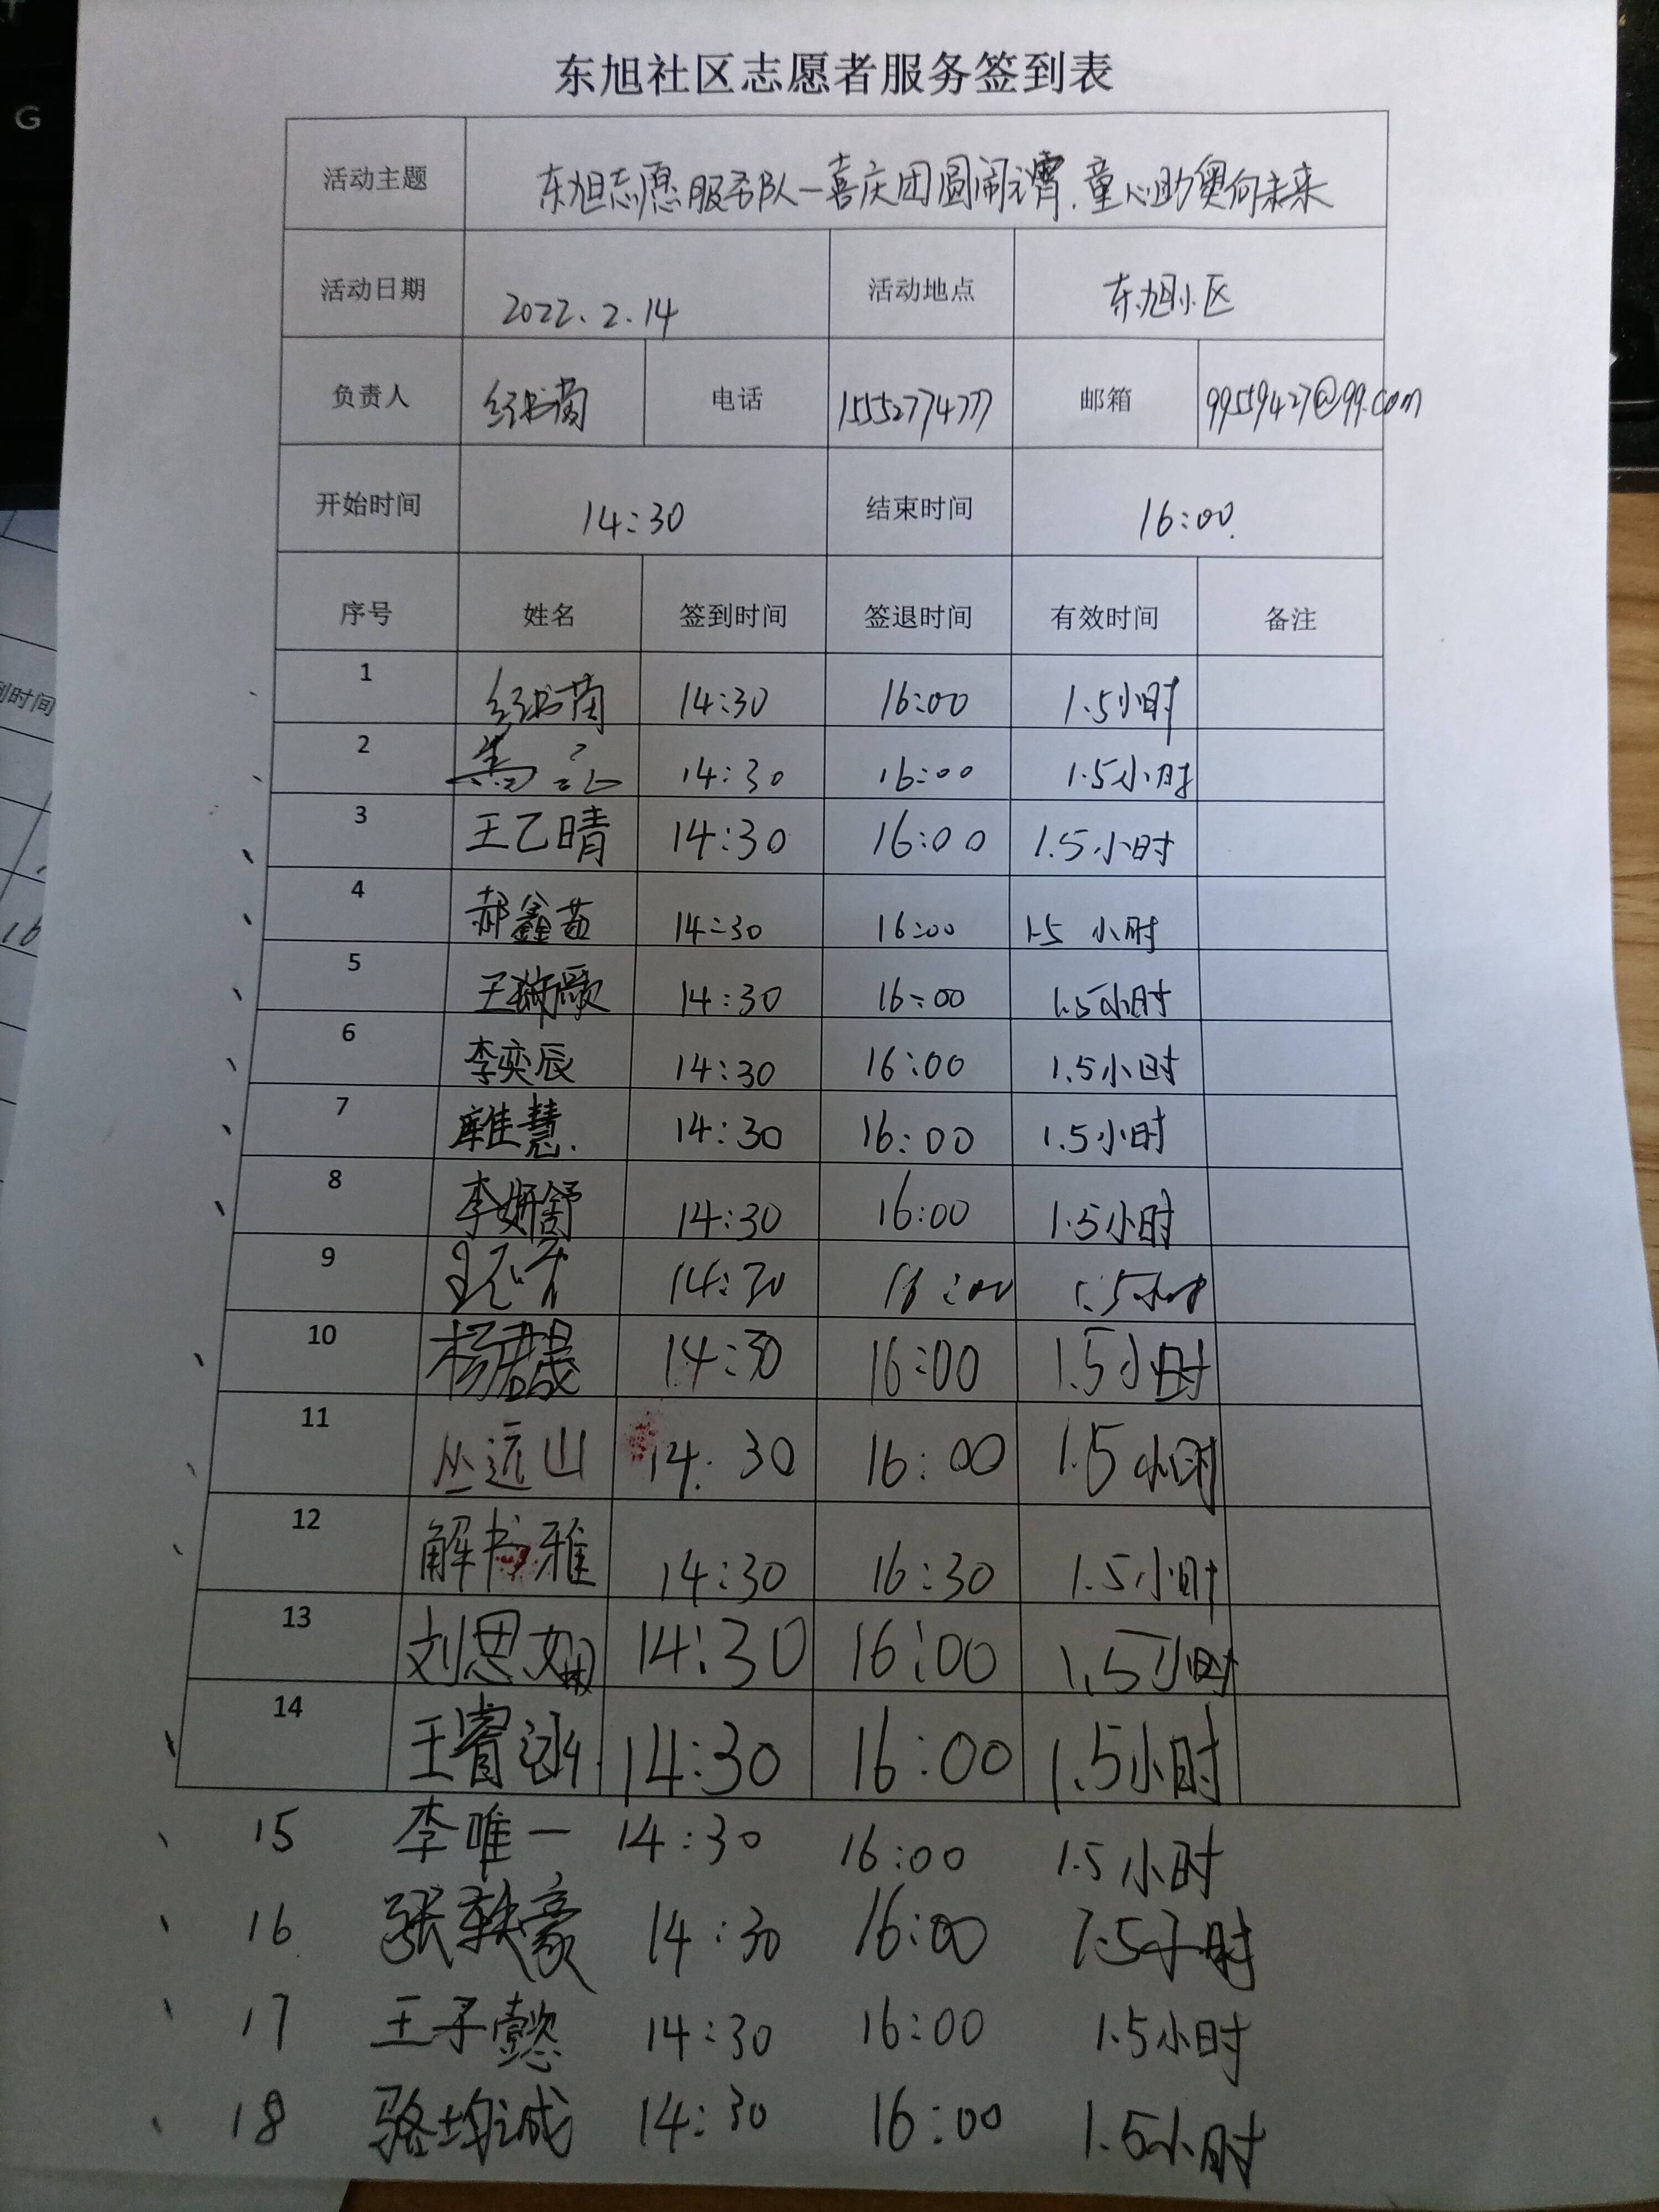 G
东旭社区志愿者服务签到表
活动主题 东旭志愿服务队一喜庆团圆闹元霄,童心助奥向未来
活动日期 2022.2.14 活动地点 东旭小区
负责人 电话 邮箱
开始时间 14:30 结束时间 16:00
序号 姓名 签到时间 签退时间 有效时间 备注
到时间
1 14:30 16:00 1.5小时
2 14:30 16:00 1.5小时
3 王乙晴 14:30 16:00 1.5小时
4 郝鑫茹 14:30 16:00 1.5 小时
16
5 14:30 16:00 1.5小时
6 李奕辰 14:30 16:00 1.5小时
7 14:30 16:00 1.5小时
8 李妍舒 14:30 16:00 1.5小时
9 14:30 16:00 1.5小时
10 杨君晟 14:30 16:00 1.5小时
11 丛远山 14:30 16:00 1.5小时
12 解书雅 14:30 16:30 1.5小时
13 刘思妍 14:30 16:00 1.5小时
14 王睿泓 14:30 16:00 1.5小时
15 李唯一 14:30 16:00 1.5小时
16 张轶豪 14:30 16:00 1.5小时
17 王子懿 14:30 16:00 1.5小时
18 骆均诚 14:30 16:00 1.5小时